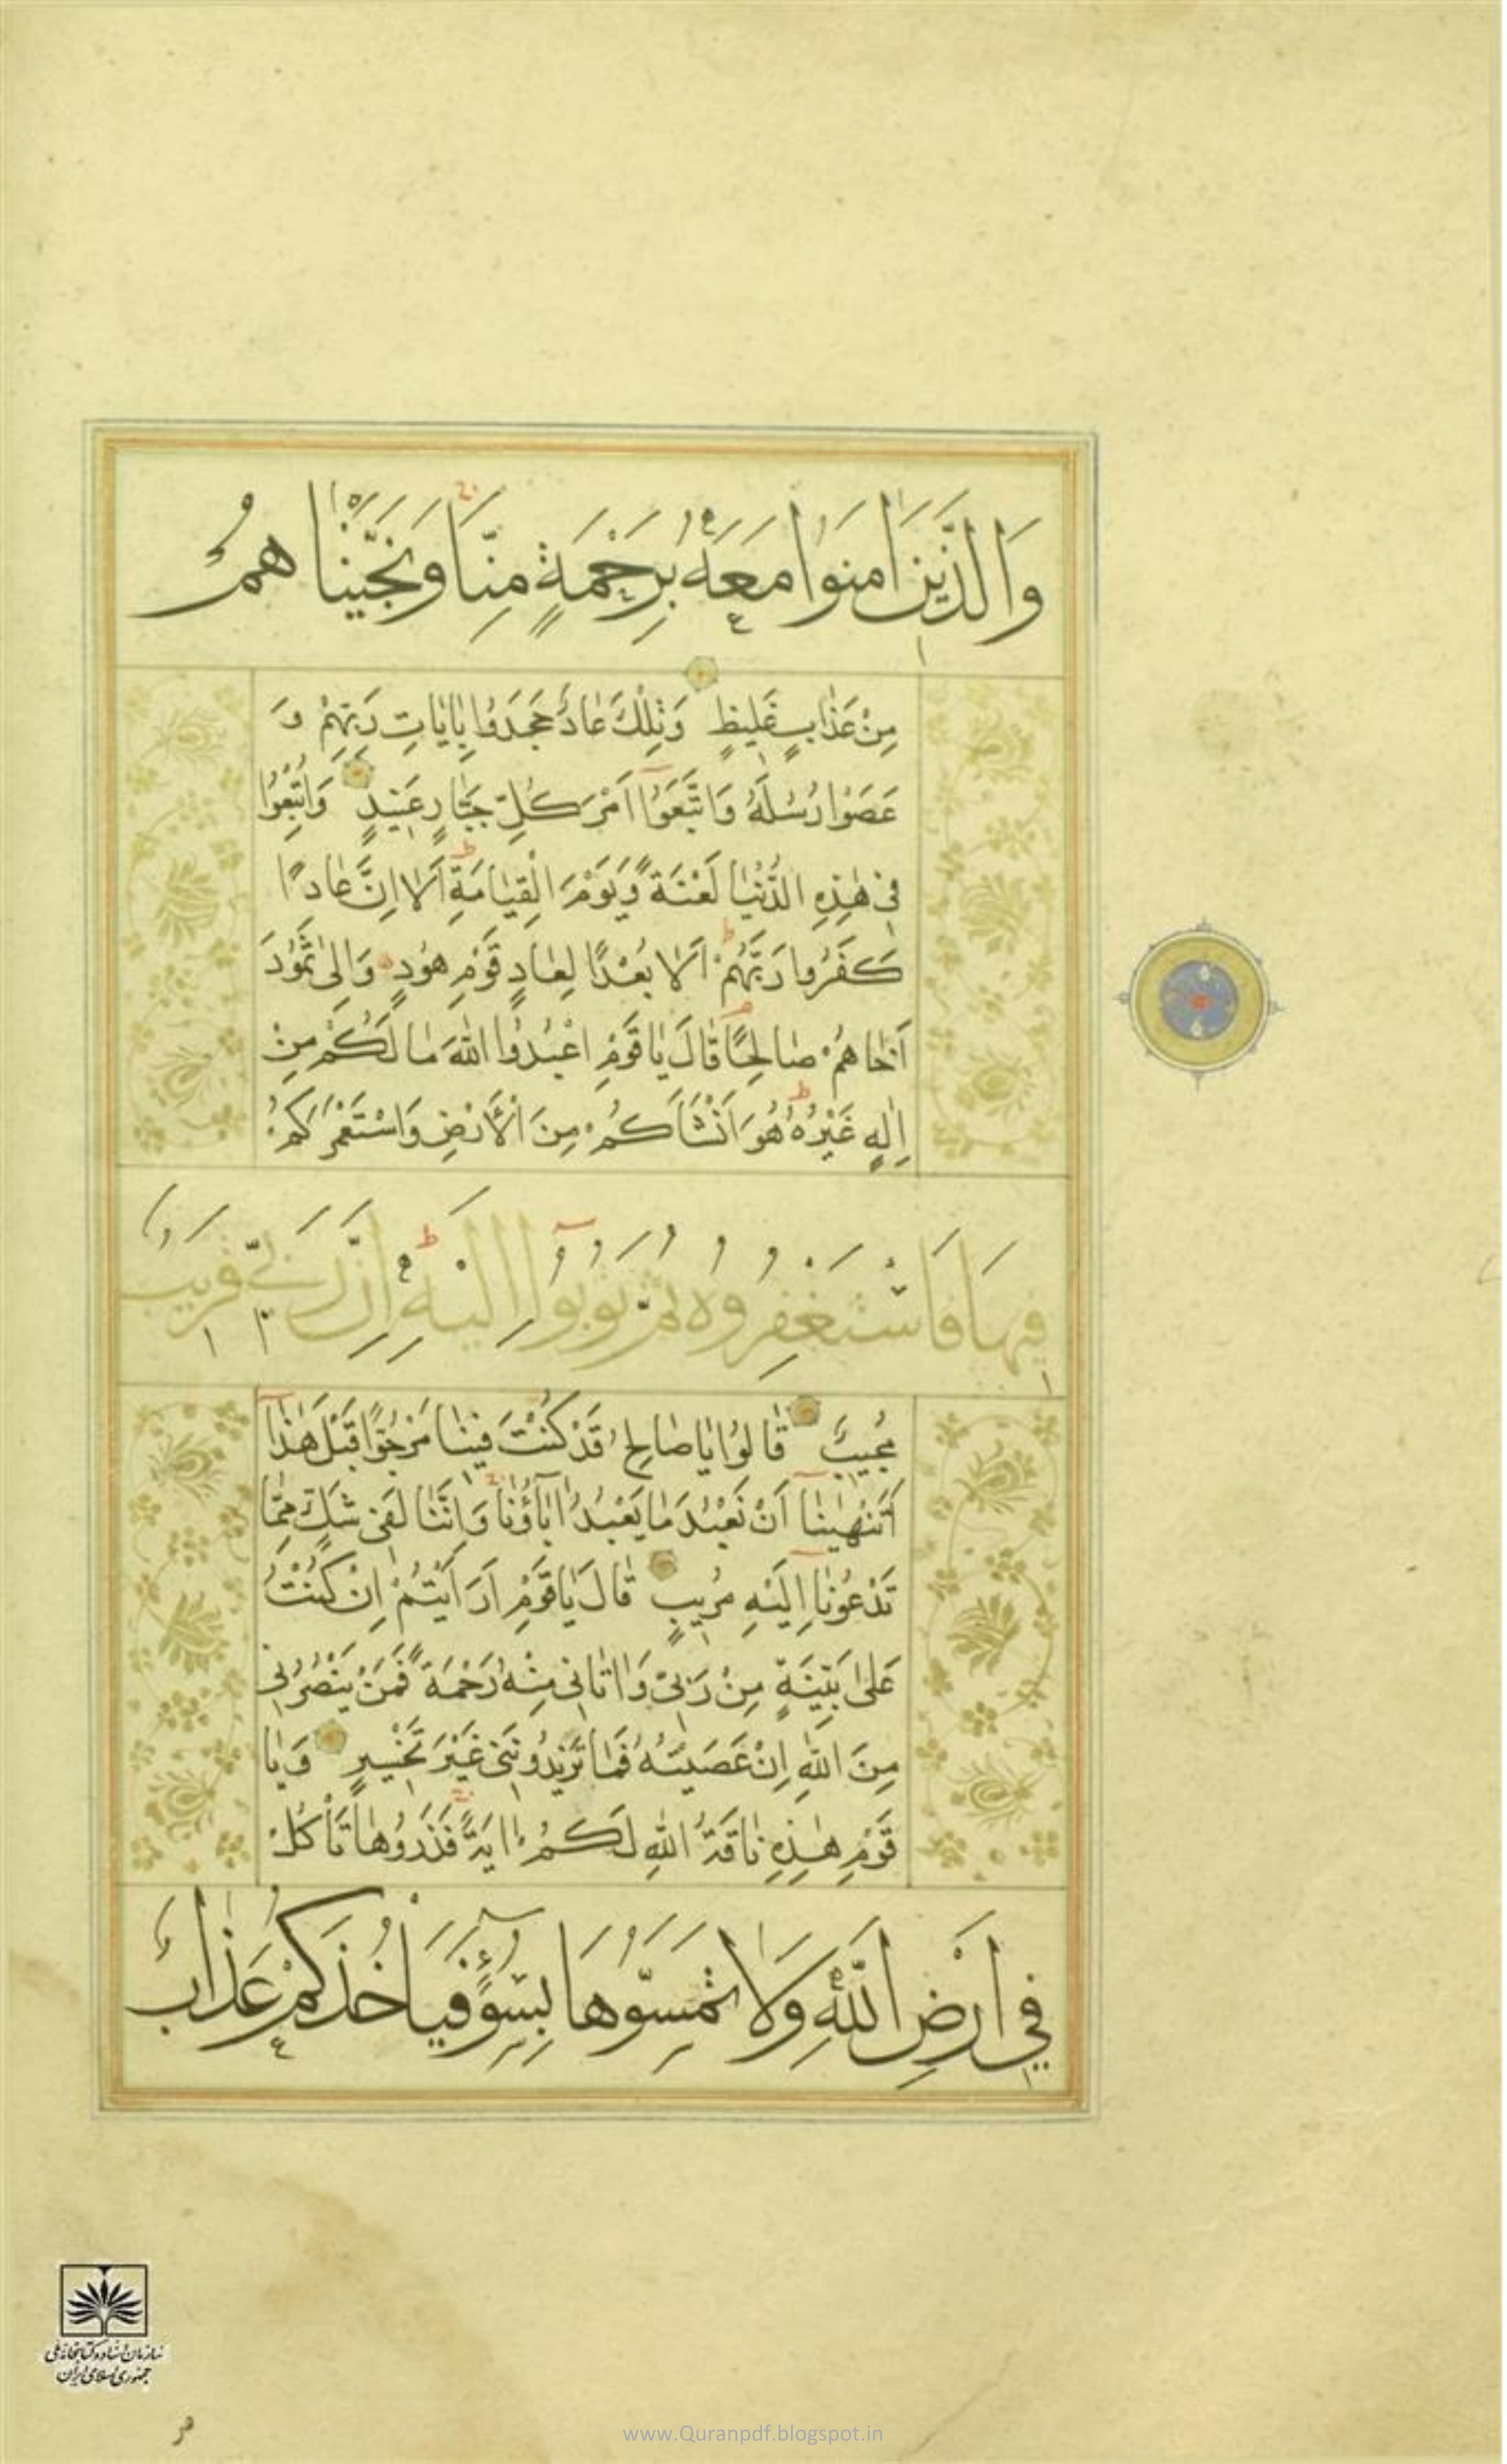 وَالَّذِينَ اٰمَنُوا مَعَهُ بِرَحْمَةٍ مِنَّا وَنَجَّيْنَاهُمْ
مِنْ عَذَابٍ غَلِيظٍ وَتِلْكَ عَادٌ جَحَدُوا بِاٰيَاتِ رَبِّهِمْ وَ
عَصَوْا رُسُلَهُ وَاتَّبَعُوا اَمْرَ كُلِّ جَبَّارٍ عَنِيدٍ وَاُتْبِعُوا
فِي هٰذِهِ الدُّنْيَا لَعْنَةً وَيَوْمَ الْقِيَامَةِ اَلَا اِنَّ عَادًا
كَفَرُوا رَبَّهُمْ اَلَا بُعْدًا لِعَادٍ قَوْمِ هُودٍ وَاِلٰى ثَمُودَ
اَخَاهُمْ صَالِحًا قَالَ يَا قَوْمِ اعْبُدُوا اللّٰهَ مَا لَكُمْ مِنْ
اِلٰهٍ غَيْرُهُ هُوَ اَنْشَاَكُمْ مِنَ الْاَرْضِ وَاسْتَعْمَرَكُمْ
فِيهَا فَاسْتَغْفِرُوهُ ثُمَّ تُوبُوا اِلَيْهِ اِنَّ رَبِّي قَرِيبٌ
مُجِيبٌ قَالُوا يَا صَالِحُ قَدْ كُنْتَ فِينَا مَرْجُوًّا قَبْلَ هٰذَا
اَتَنْهٰينَا اَنْ نَعْبُدَ مَا يَعْبُدُ اٰبَاؤُنَا وَاِنَّنَا لَفِي شَكٍّ مِمَّا
تَدْعُونَا اِلَيْهِ مُرِيبٍ قَالَ يَا قَوْمِ اَرَاَيْتُمْ اِنْ كُنْتُ
عَلٰى بَيِّنَةٍ مِنْ رَبِّي وَاٰتَانِي مِنْهُ رَحْمَةً فَمَنْ يَنْصُرُنِي
مِنَ اللّٰهِ اِنْ عَصَيْتُهُ فَمَا تَزِيدُونَنِي غَيْرَ تَخْسِيرٍ وَيَا
قَوْمِ هٰذِهِ نَاقَةُ اللّٰهِ لَكُمْ اٰيَةً فَذَرُوهَا تَأْكُلْ
فِي اَرْضِ اللّٰهِ وَلَا تَمَسُّوهَا بِسُوٓءٍ فَيَاْخُذَكُمْ عَذَابٌ
سازمان اسناد و کتابخانه ملی
جمهوری اسلامی ایران
www.Quranpdf.blogspot.in